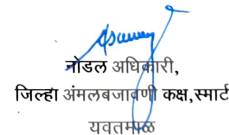 नोडल अधिकारी,
जिल्हा अंमलबजावणी कक्ष,स्मार्ट
यवतमाळ